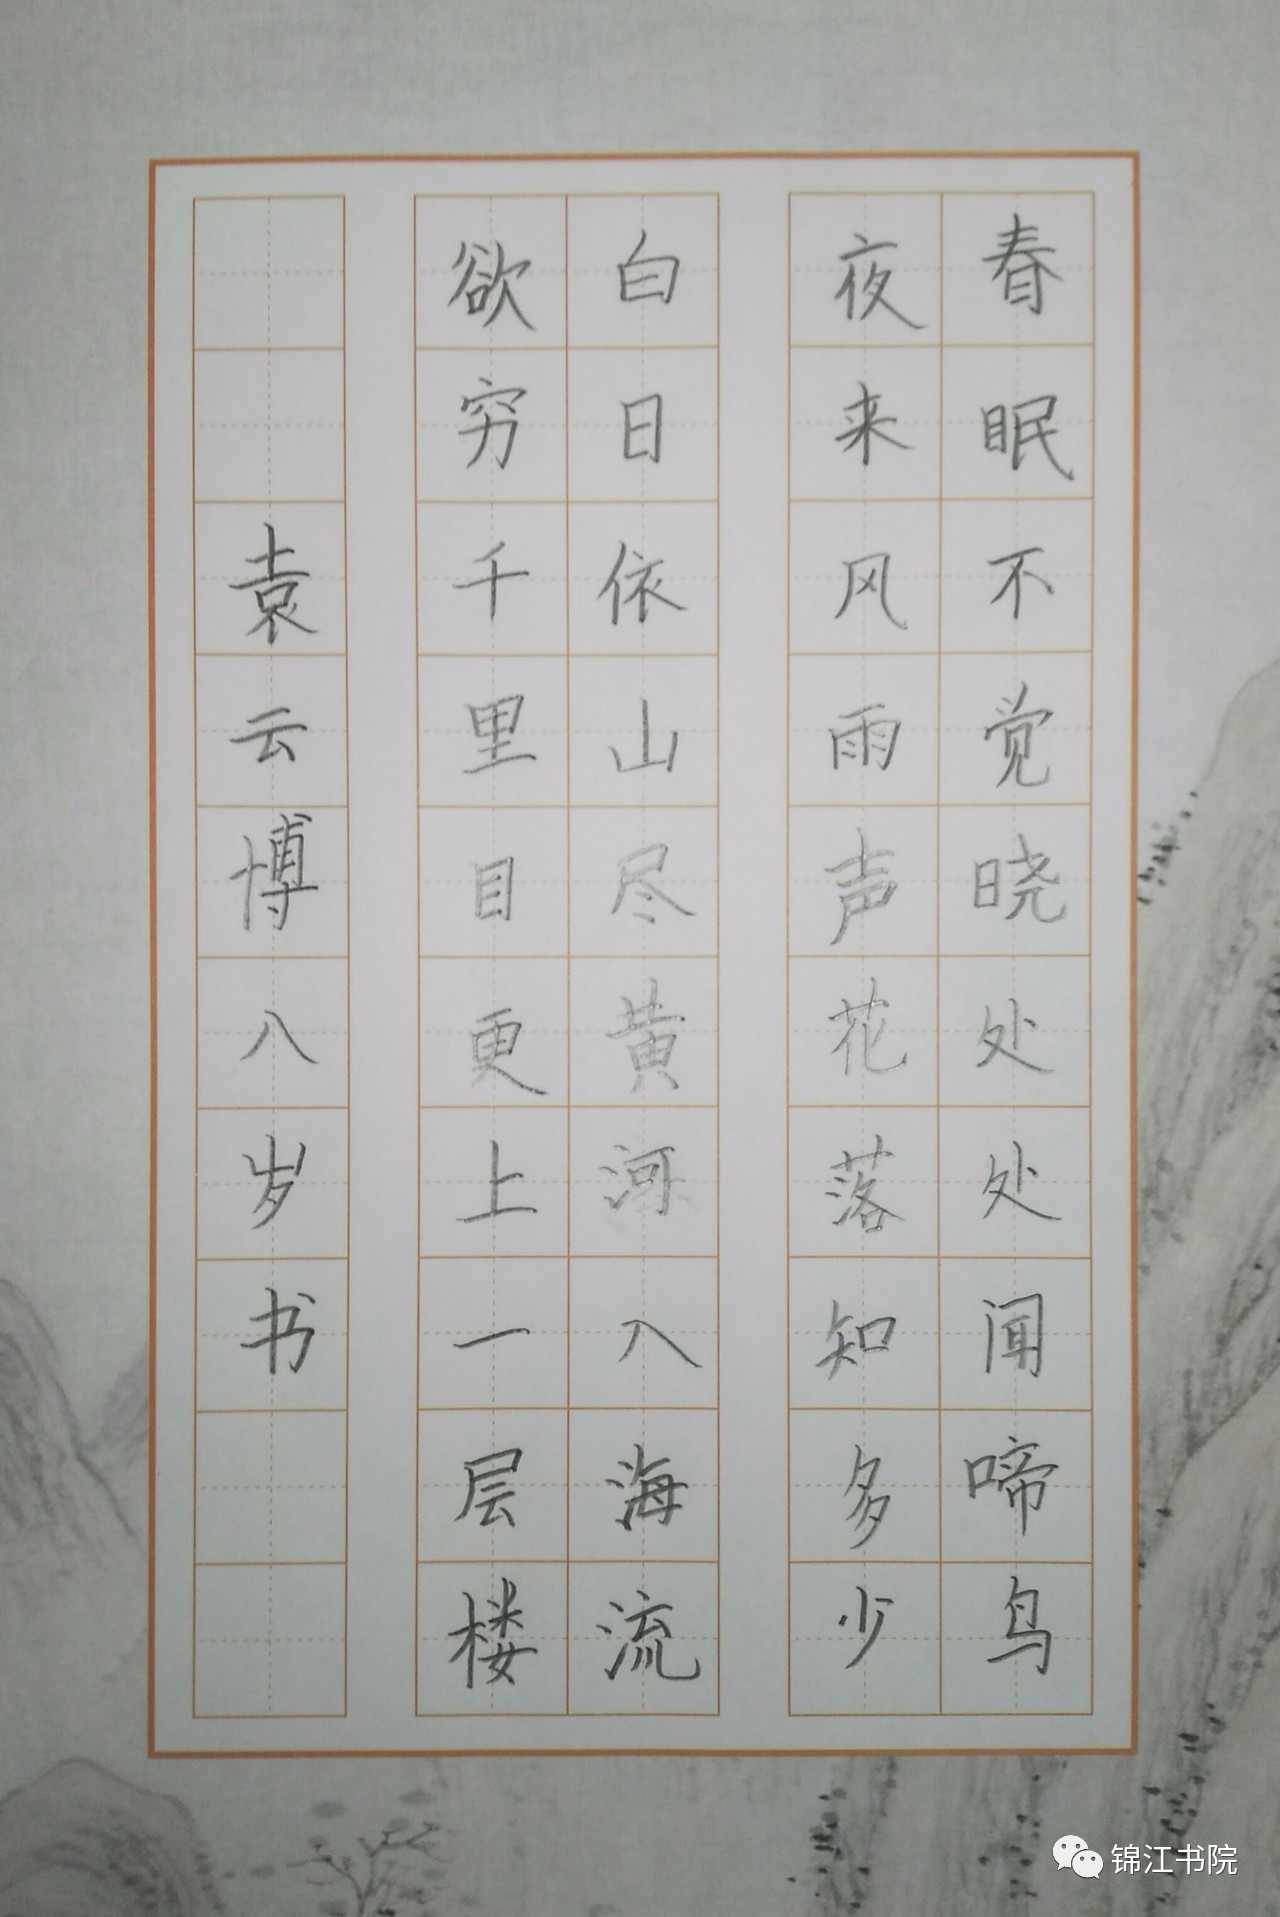 春眠不觉晓处处闻啼鸟
夜来风雨声花落知多少
白日依山尽黄河入海流
欲穷千里目更上一层楼
袁云博八岁书
锦江书院